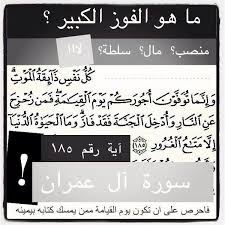 ما هو الفوز الكبير ؟
منصب؟ مال؟ سلطة؟ لااا
كُلُّ نَفْسٍ ذَائِقَةُ الْمَوْتِ
وَإِنَّمَا تُوَفَّوْنَ أُجُورَكُمْ يَوْمَ الْقِيَامَةِ فَمَن زُحْزِحَ
عَنِ النَّارِ وَأُدْخِلَ الْجَنَّةَ فَقَدْ فَازَ وَمَا الْحَيَاةُ الدُّنْيَا
إِلَّا مَتَاعُ الْغُرُورِ ١٨٥
آية رقم ١٨٥
سورة آل عمران
!
فاحرص على ان تكون يوم القيامة ممن يمسك كتابه بيمينه